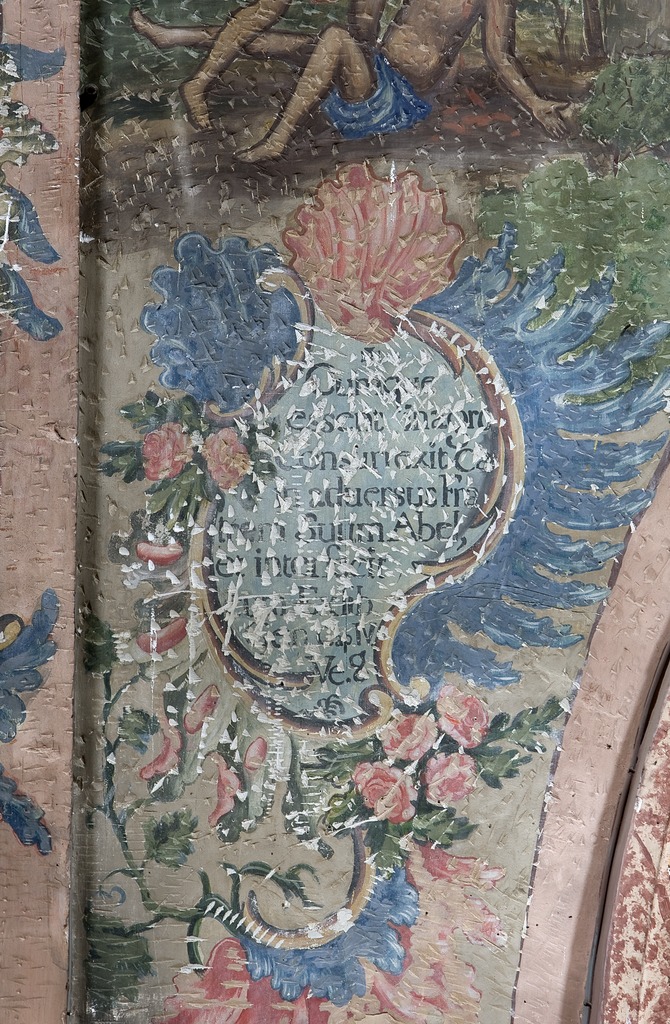 Cumque
essent in agro
Consurrexit Ca
in adversus fra
trem Suum Abel
et interfecit
Ve. 8